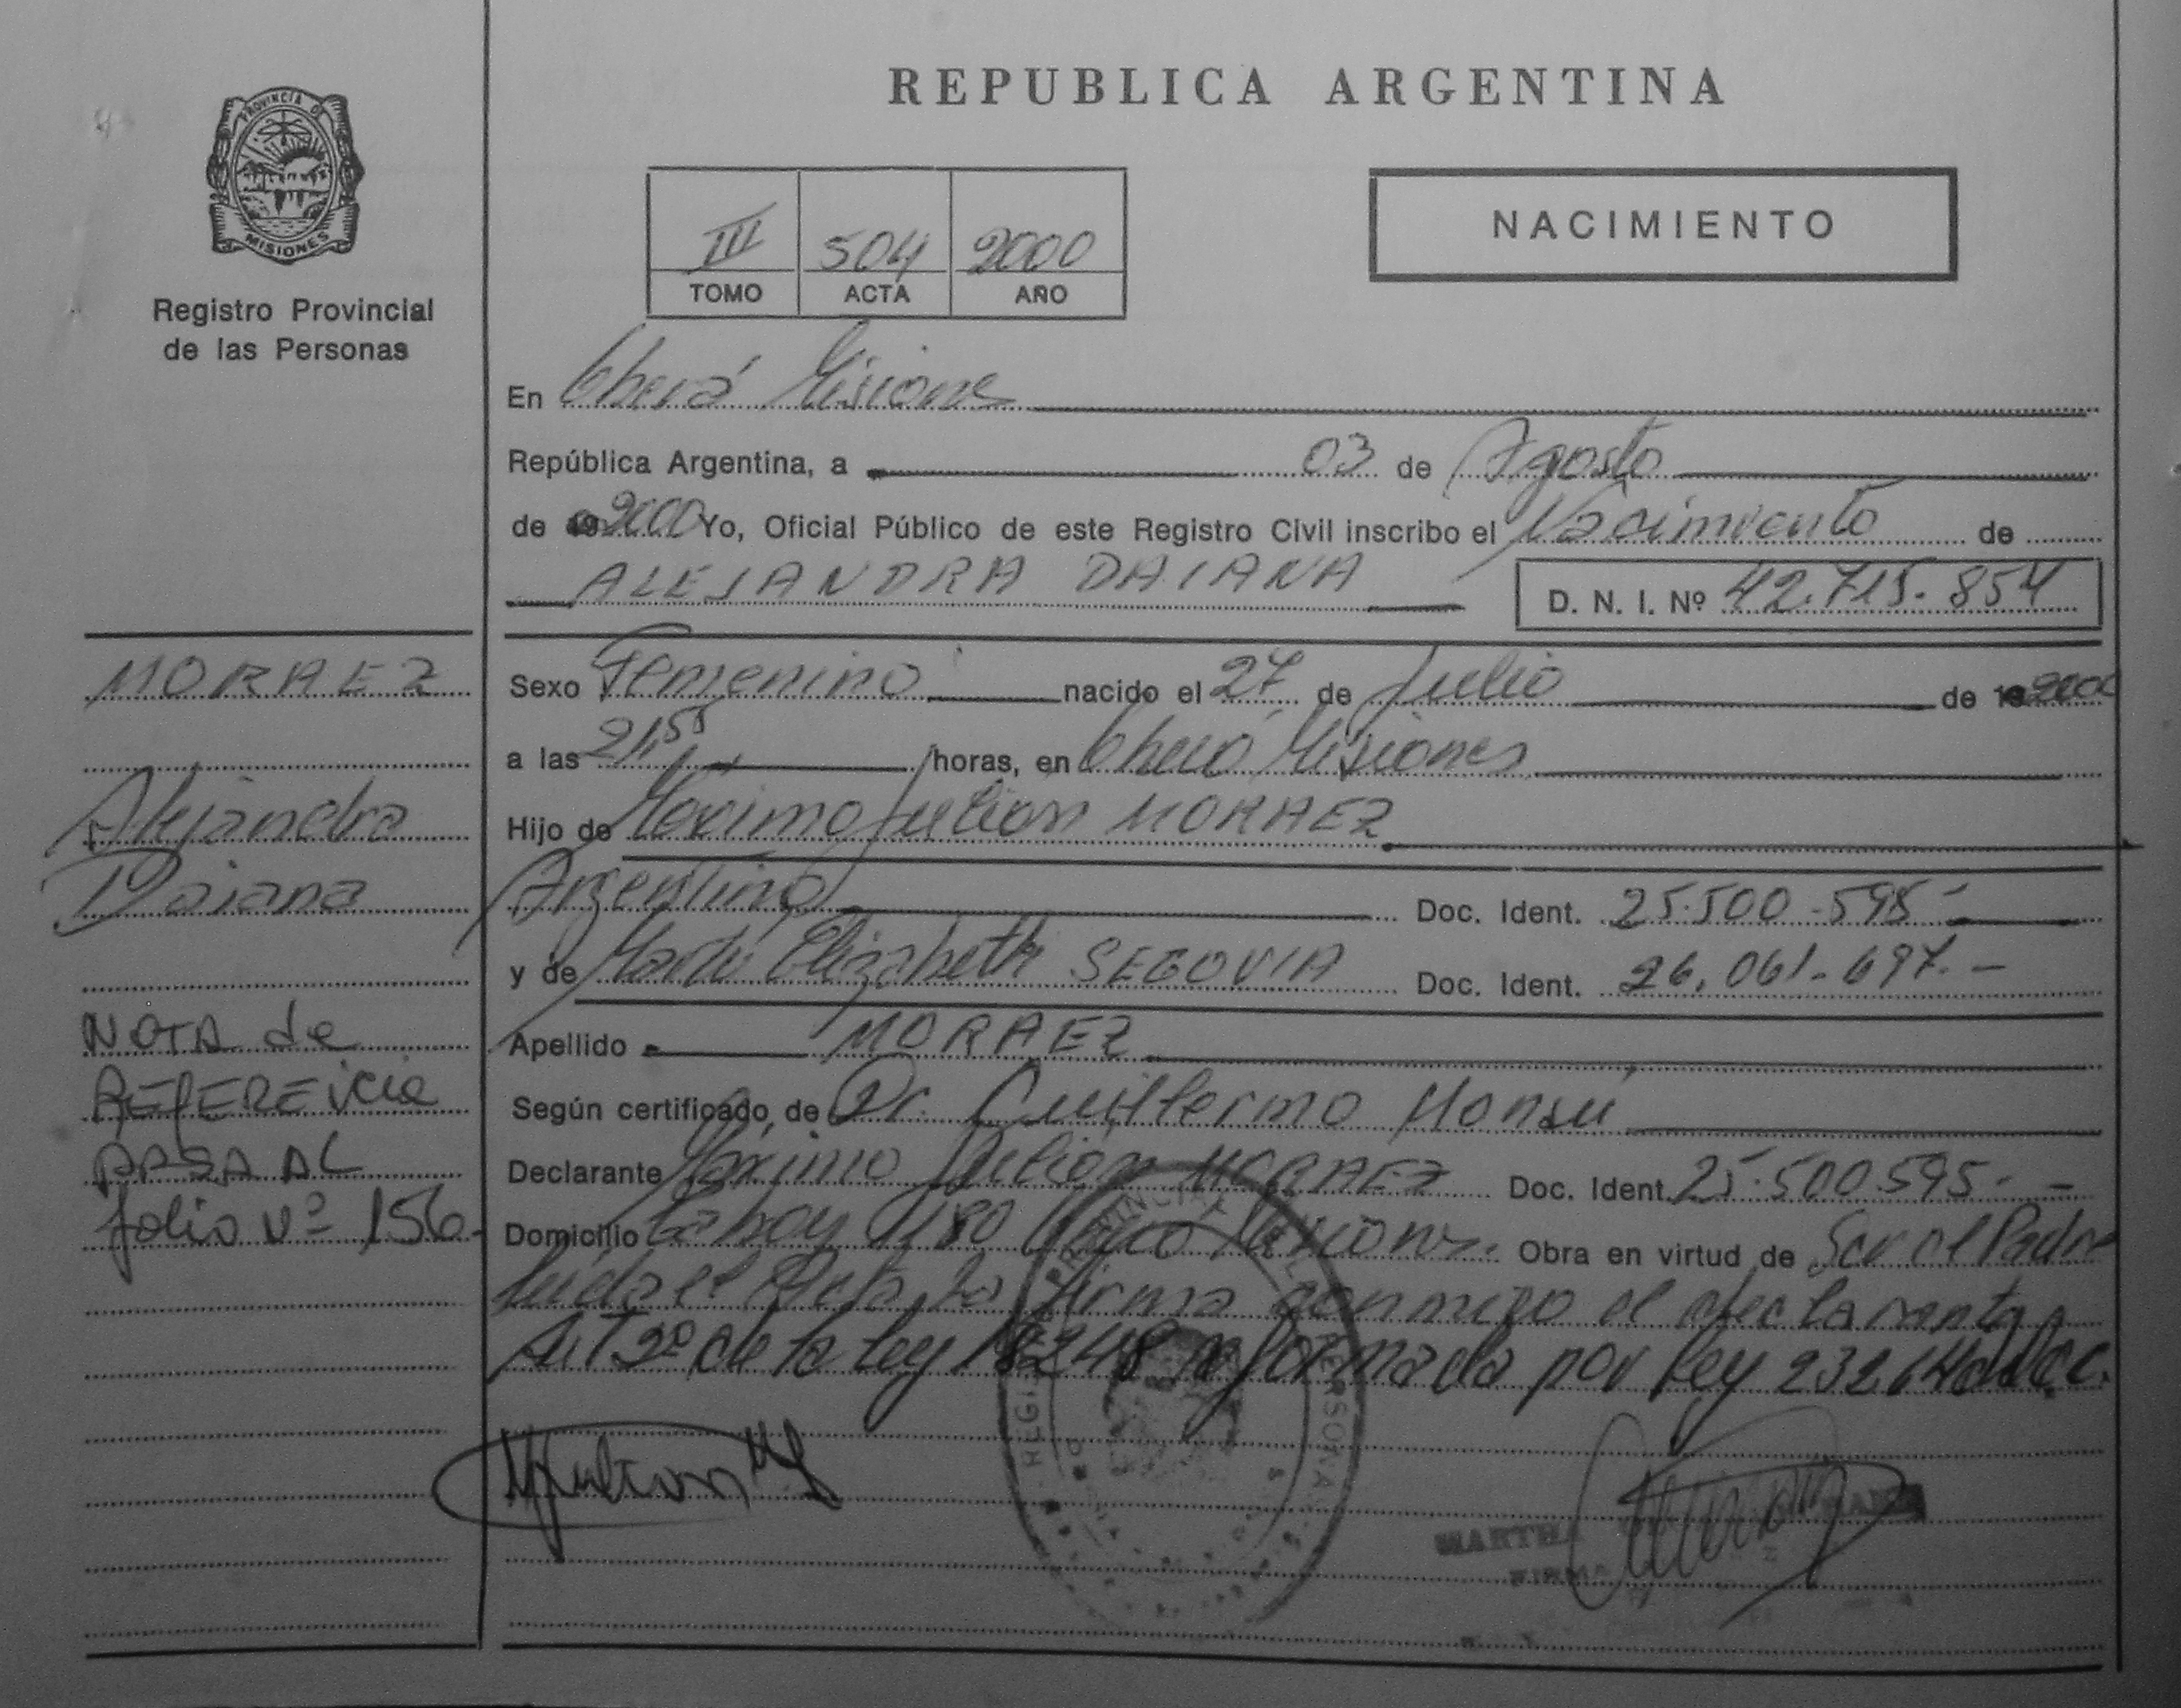 REPUBLICA ARGENTINA
PROVINCIA DE
MISIONES
Registro Provincial
de las Personas
III 504 2000
TOMO ACTA AÑO
NACIMIENTO
En Oberá Misiones
República Argentina, a 03 de Agosto
de 2000 Yo, Oficial Público de este Registro Civil inscribo el Nacimiento de
ALEJANDRA DAIANA D. N. I. Nº 42.715.854
MORAEZ
Alejandra
Daiana
NOTA de
REFERENCIA
PASA AL
folio Nº 156.
Sexo Femenino nacido el 27 de Julio de 2000
a las 21,55 horas, en Oberá Misiones
Hijo de Máximo Julián MORAEZ
Argentino Doc. Ident. 25.500.595-
y de Elizabeth SEGOVIA Doc. Ident. 26.061.697.-
Apellido MORAEZ
Según certificado de Dr. Guillermo
Declarante Máximo Julián MORAEZ Doc. Ident. 25.500.595.-
Domicilio 1180 Oberá Misiones. Obra en virtud de Ser el Padre
Leída el Acta, la firma conmigo el declarante
Art 2º de la ley 18248 reformada por ley 23264
REGISTRO PROVINCIAL DE LAS PERSONAS
MARTHA